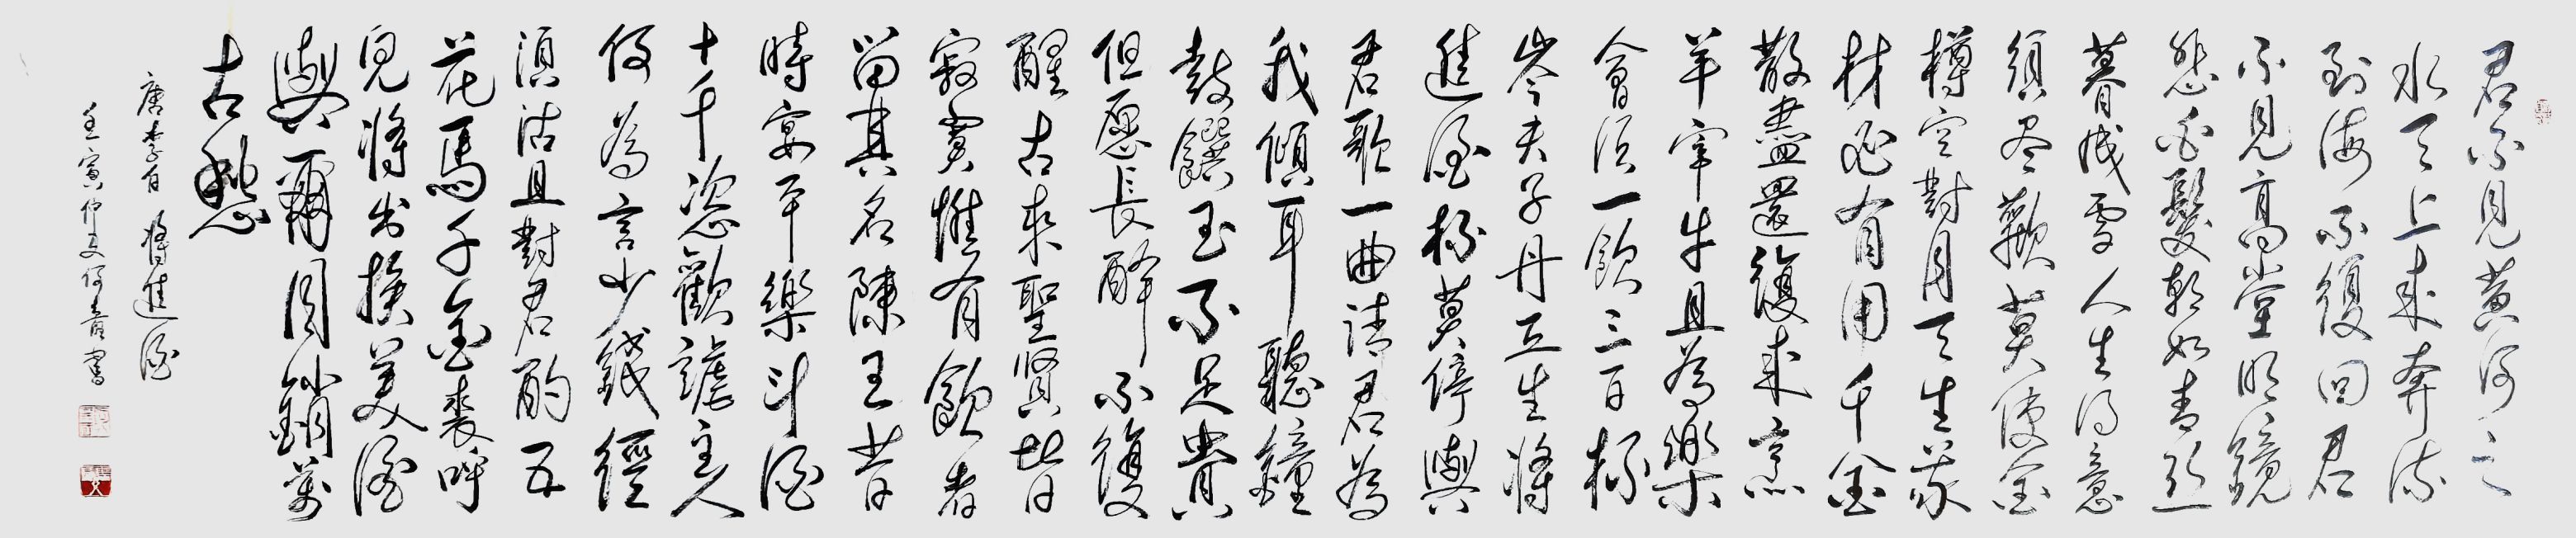 君不見黃河之
水天上来奔流
到海不復回君
不見高堂明鏡
悲白髮朝如青丝
暮成雪人生得意
須尽歡莫使金
樽空對月天生我
材必有用千金
散盡還復来烹
羊宰牛且為樂
會須一飲三百杯
岑夫子丹丘生將
進酒杯莫停與
君歌一曲請君為
我傾耳聽鐘
鼓饌玉不足貴
但愿長醉不復
醒古来聖賢皆
寂寞惟有飲者
留其名陳王昔
時宴平樂斗酒
十千恣歡謔主人
何為言少錢徑
須沽且對君酌五
花馬千金裘呼
兒將出換美酒
與爾同銷萬
古愁
唐李白 將進酒
壬寅仲夏何青書